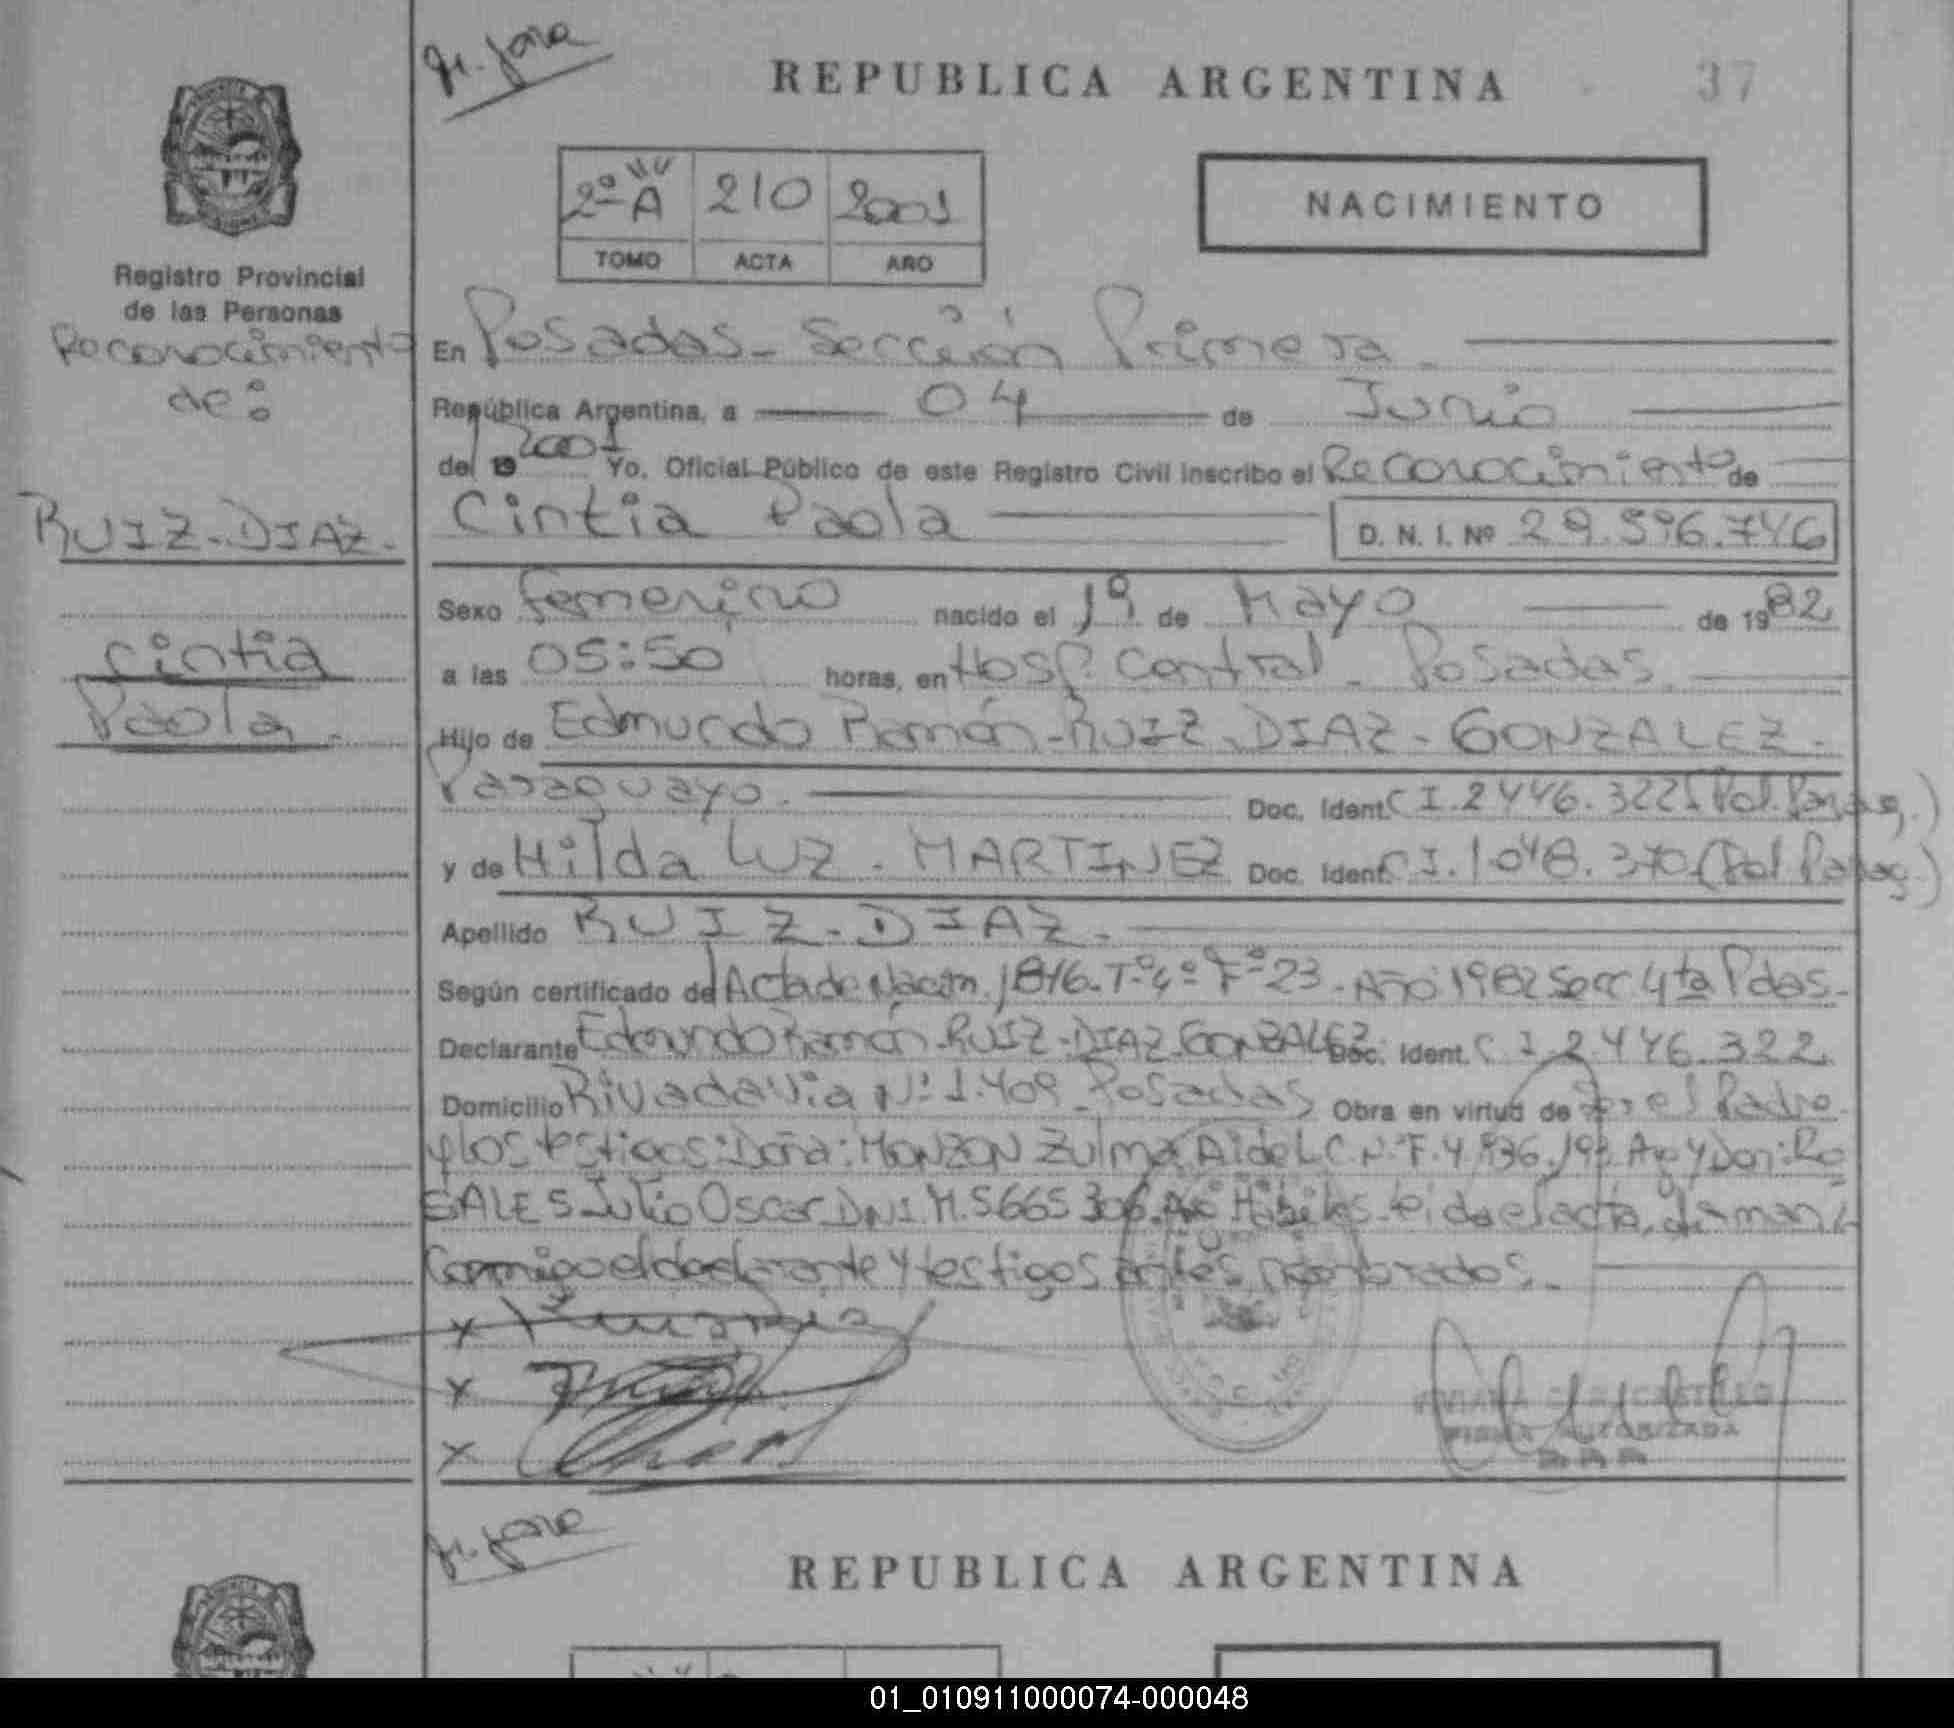 REPUBLICA ARGENTINA
37
2º A 210 2001
TOMO ACTA AÑO
NACIMIENTO
Registro Provincial
de las Personas
Reconocimiento
de:
RUIZ-DIAZ.
Cintia
Paola.
En Posadas - Sección Primera.
República Argentina, a 04 de Junio
del 19 2001 Yo, Oficial Público de este Registro Civil inscribo el Reconocimiento de
Cintia Paola D. N. I. Nº 29.596.746
Sexo femenino nacido el 1º de Mayo de 1982
a las 05:50 horas, en Hosp. Central - Posadas.
Hijo de Edmundo Ramón - RUIZ DIAZ - GONZALEZ -
Paraguayo. Doc. Ident. C I. 2446.322 (Pol. Parag.)
y de Hilda LUZ - MARTINEZ Doc. Ident. C I. 1.048.370 (Pol. Parag.)
Apellido RUIZ - DIAZ -
Según certificado de Acta de Nacim. 1816. Tº 4º Fº 23 - Año 1982 Secc 4ta Pdas.
Declarante Edmundo Ramón - RUIZ - DIAZ - GONZALEZ Doc. Ident. C I 2446.322
Domicilio Rivadavia Nº 1.409 - Posadas Obra en virtud de ser el Padre
y los testigos: Doña: MONZON Zulma Aide L.C. Nº F. 4. y Don: RO
SALES Julio Oscar DNI. M. 5665 306. Hábiles - leida el acta, firman
Conmigo el declarante y testigos antes nombrados. -
x
x
x
FIRMA AUTORIZADA
REPUBLICA ARGENTINA
01_010911000074-000048